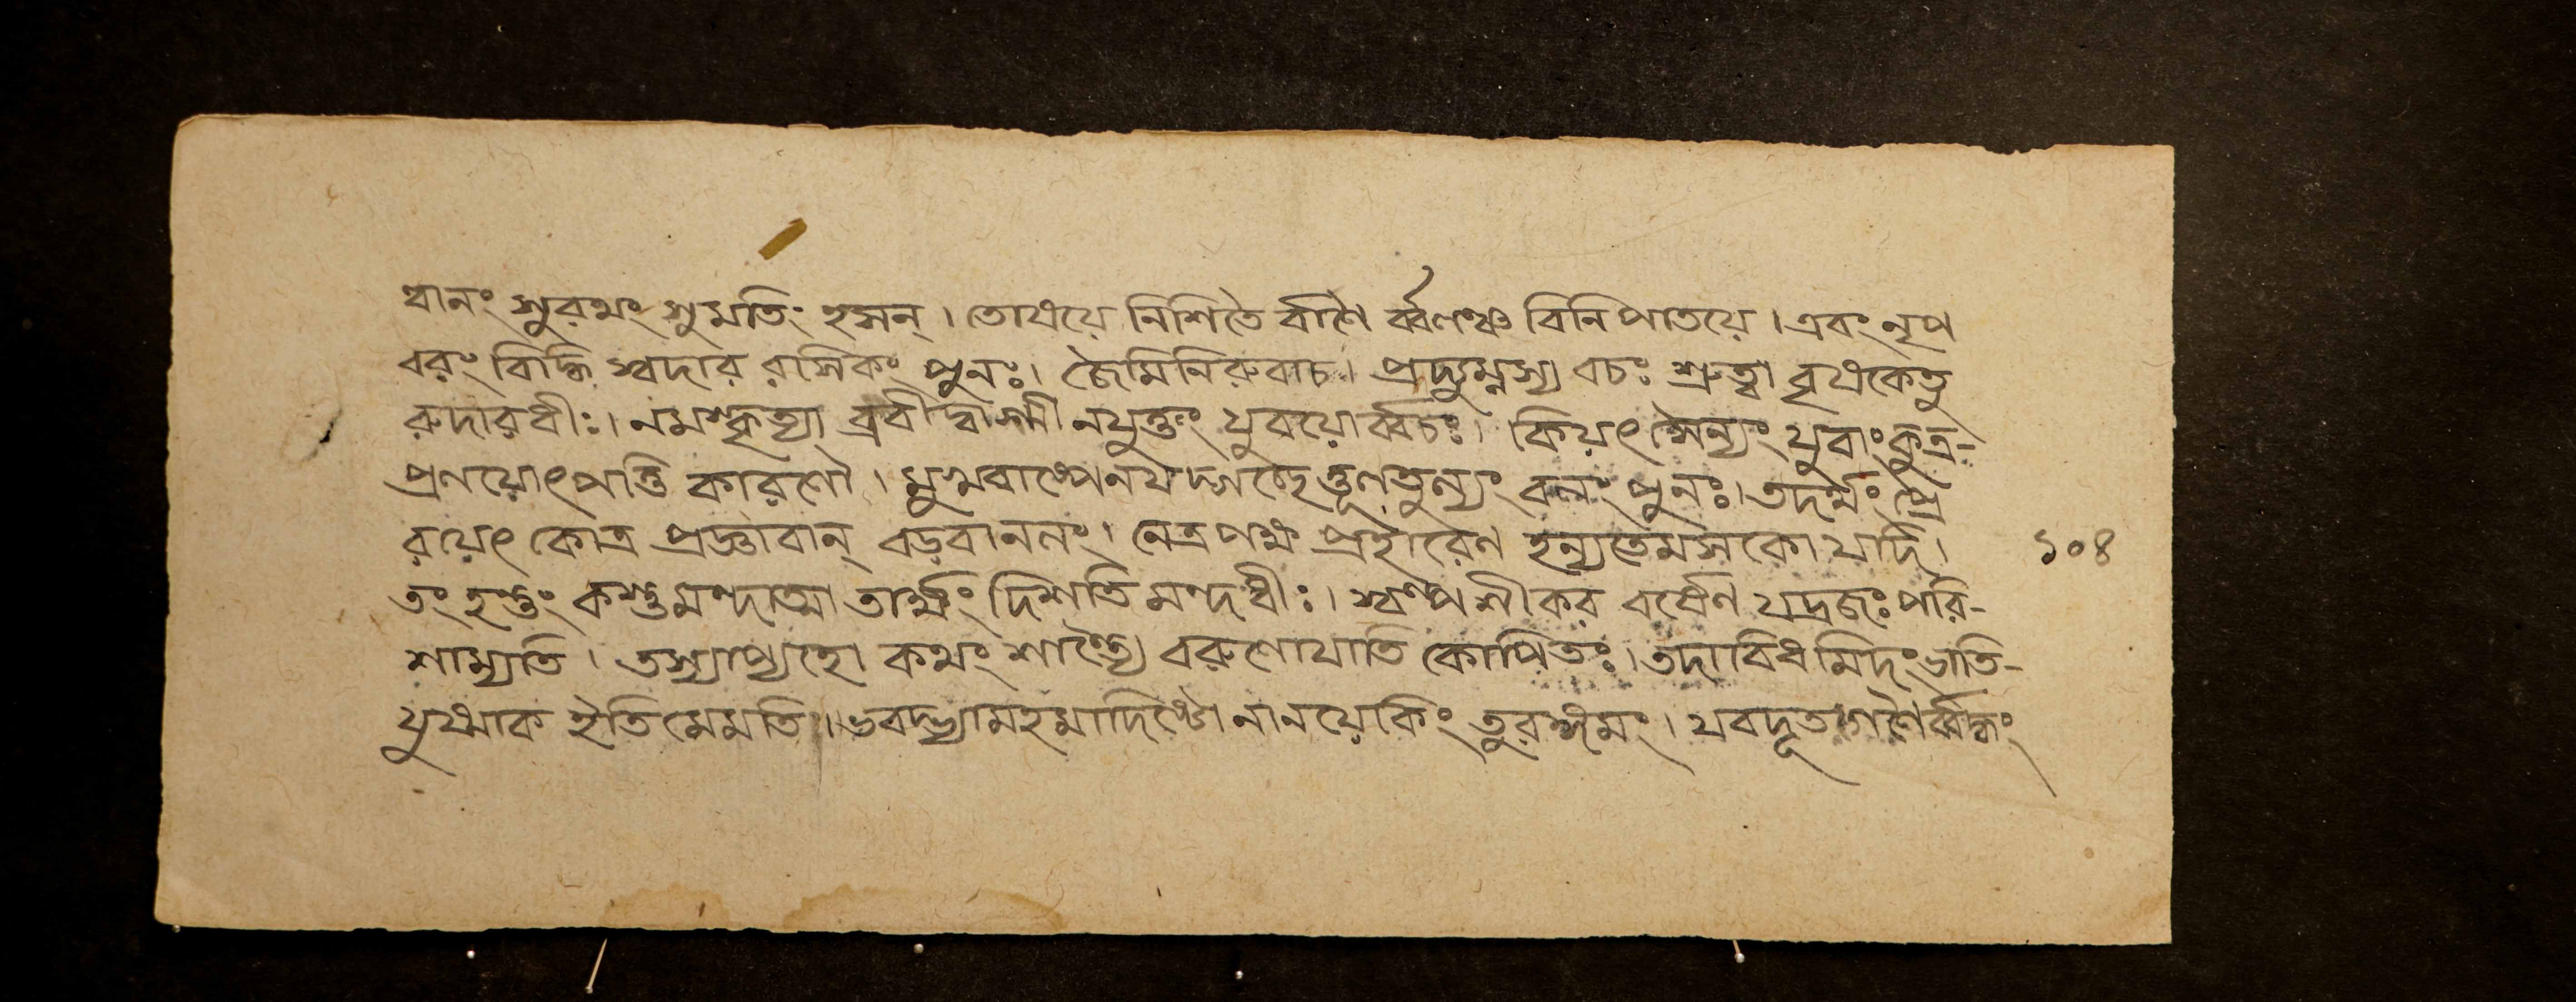 ধানং সুরথং সুমতিং হসন্। তোষয়ে নিশিতৈ র্বাণৈ র্ব্বলঞ্চ বিনিপাতয়ে। এবং নৃপ
বরং বিদ্ধি স্বদার রসিকং পুনঃ। জৈমিনিরুবাচ। প্রদ্যুম্নস্য বচঃ শ্রুত্বা বৃষকেতু
রুদারধীঃ। নমস্কৃত্যা ব্রবীদ্বাগ্মী নযুক্তং যুবয়োর্ব্বচঃ। কিয়ৎ সৈন্যং যুবাং কুত্র-
প্রণয়োৎপত্তি কারণৌ। মুখবাষ্পেন যদ্গচ্ছেত্তূলতুল্যং বলং পুনঃ। তদর্থং প্রে
রয়েৎ কোত্র প্রজ্ঞাবান্ বড়বানলং। নেত্রপক্ষ্ম প্রহারেণ হন্যতে মসকো যদি।
তং হন্তুং কস্তু মন্দাত্মা তার্ক্ষং দিশতি মন্দধীঃ। স্বল্প শীকর বর্ষেণ যদ্রজঃ পরি-
শাম্যতি। তস্যাপ্যহো কথং শান্ত্যৈ বরুণো যাতি কোপিতঃ। তদাবিধমিদং ভাতি-
যুষ্মাক ইতি মে মতি। ভবদ্ভ্যামহমাদিষ্টো নানয়ে কিং তুরঙ্গমং। যবদূতগণৈর্ব্বদ্ধং
১০৪